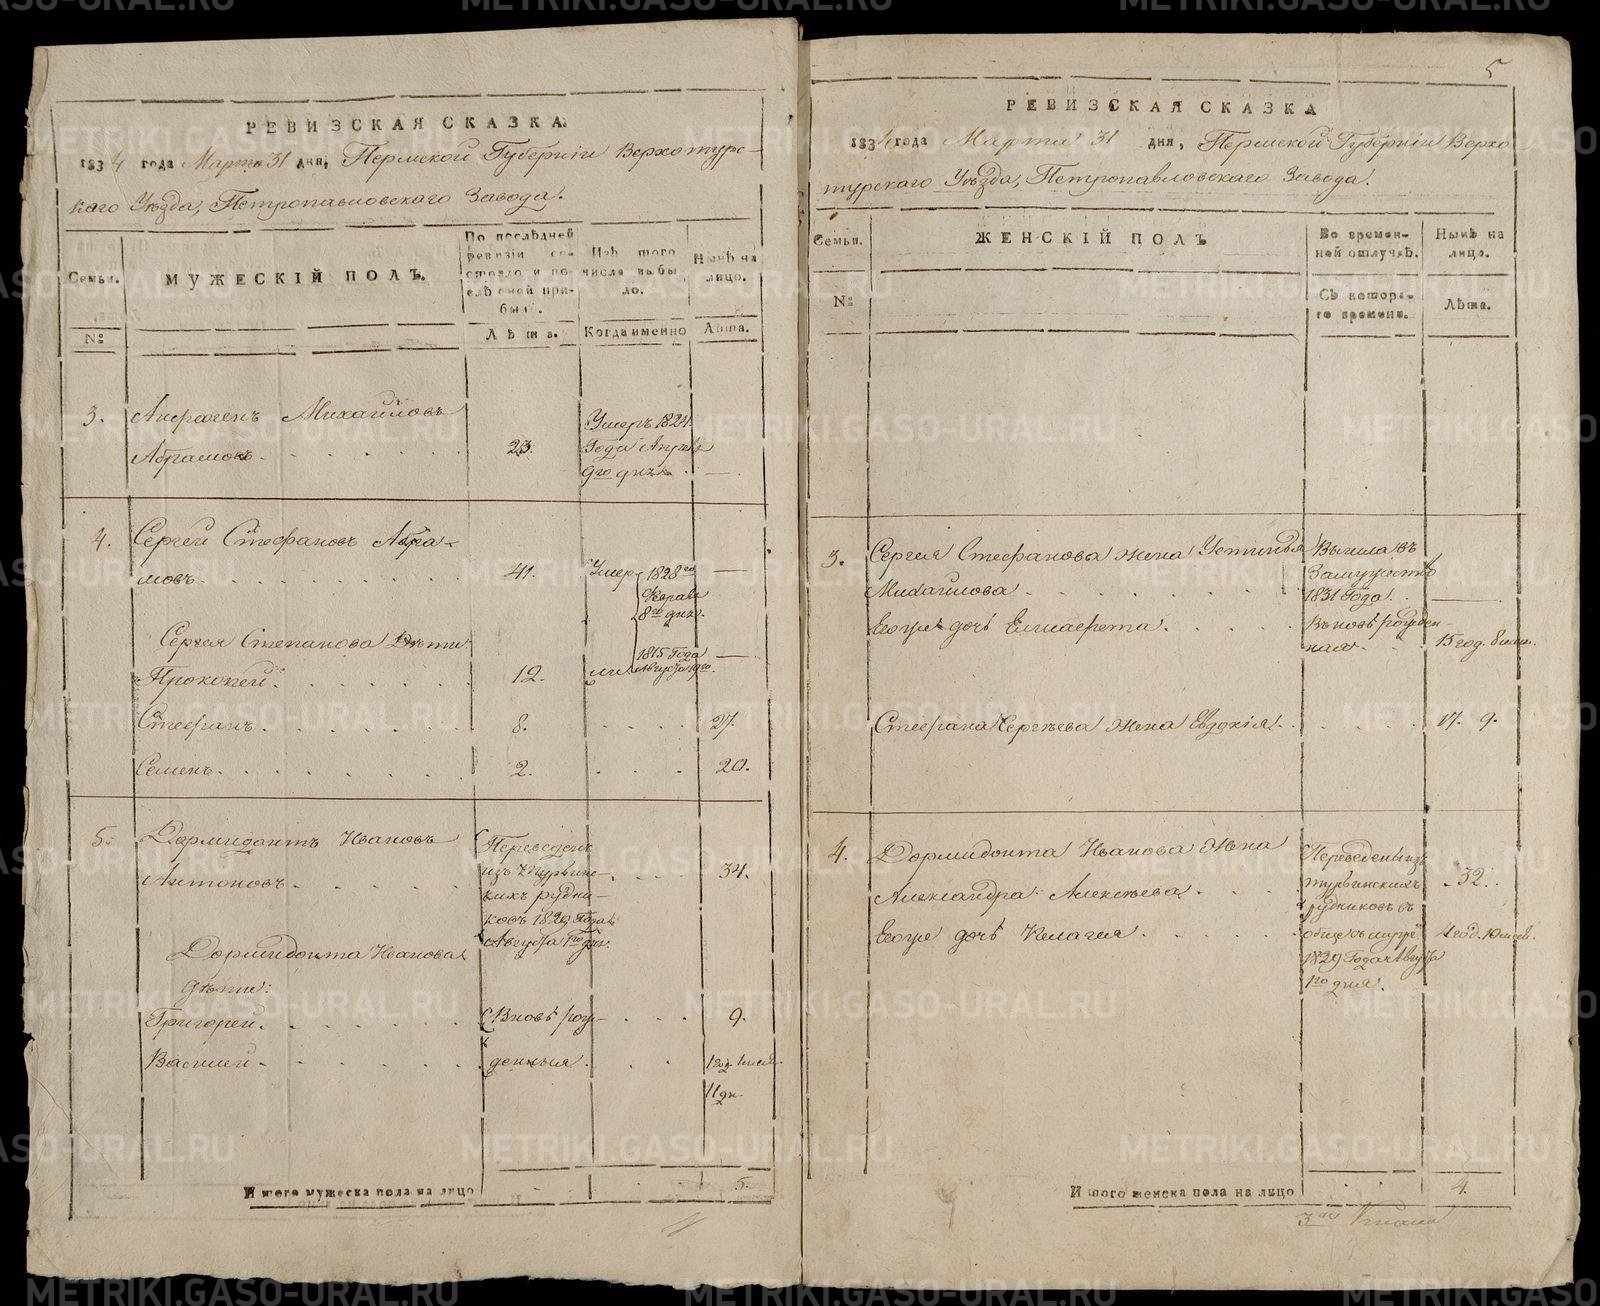 РЕВИЗСКАЯ СКАЗКА.
1834 года Марта 31 дня, Пермской Губерніи Верхотурс-
каго Уѣзда, Петропавловскаго Завода.
Семьи.
МУЖЕСКІЙ ПОЛЪ.
По послѣдней ревизіи состояло и послѣ оной прибыло.
Изъ того числа выбыло.
Нынѣ на лицо.
№
Лѣта.
Когда именно
Лѣта.
3. Михайловъ
Абрамовъ. 23.
Умеръ 1824
Года Апрѣля
9го дня
4. Сергей Стефановъ Абра-
мовъ. 41. Умер 1828го
Февраля
8го дня.
Сергея Степанова Дѣти
Прокопей. 12. 1815 Года
Августа 19го.
Стефанъ. 8. 27.
Семенъ. 2. 20.
5. Дормидонтъ Ивановъ
Антоновъ. 34.
Переведенъ
изъ Турьинс-
кихъ рудни-
ковъ 1829 Года
Августа 1го дня.
Дормидонта Иванова
дѣти:
Григорей. Вновь рож- 9.
Василей. денныя. 1 год. 1 меся.
11 дн.
Итого мужеска пола на лицо 5.
5
РЕВИЗСКАЯ СКАЗКА
1834 года Марта 31 дня, Пермской Губерніи Верхо
турскаго Уѣзда, Петропавловскаго Завода.
Семьи.
ЖЕНСКІЙ ПОЛЪ
Во временной отлучкѣ.
Нынѣ на лицо.
№
Съ котораго времени.
Лѣта.
3. Сергея Стефанова жена Устинья
Михайлова.
Вышла въ
Замужство
1831 Года.
Вновь рожден-
ная
Ево дочь Елисавета. 15 год. 8 мес.
Стефана Сергѣева жена Евдокія. 17. 9.
4. Дормидонта Иванова Жена
Александра Алексѣева. 32.
Переведены изъ
турьинскихъ
рудниковъ въ
1829 Года Августа
1го дня.
дочь Пелагия. 4 год. 10 мес.
Итого женска пола на лицо 4.